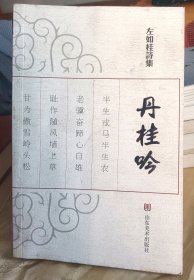 左如桂詩集
丹桂吟
半生戎马半生农
老骥奋蹄心自雄
耻作随风墙上草
甘为傲雪岭头松
山东美术出版社